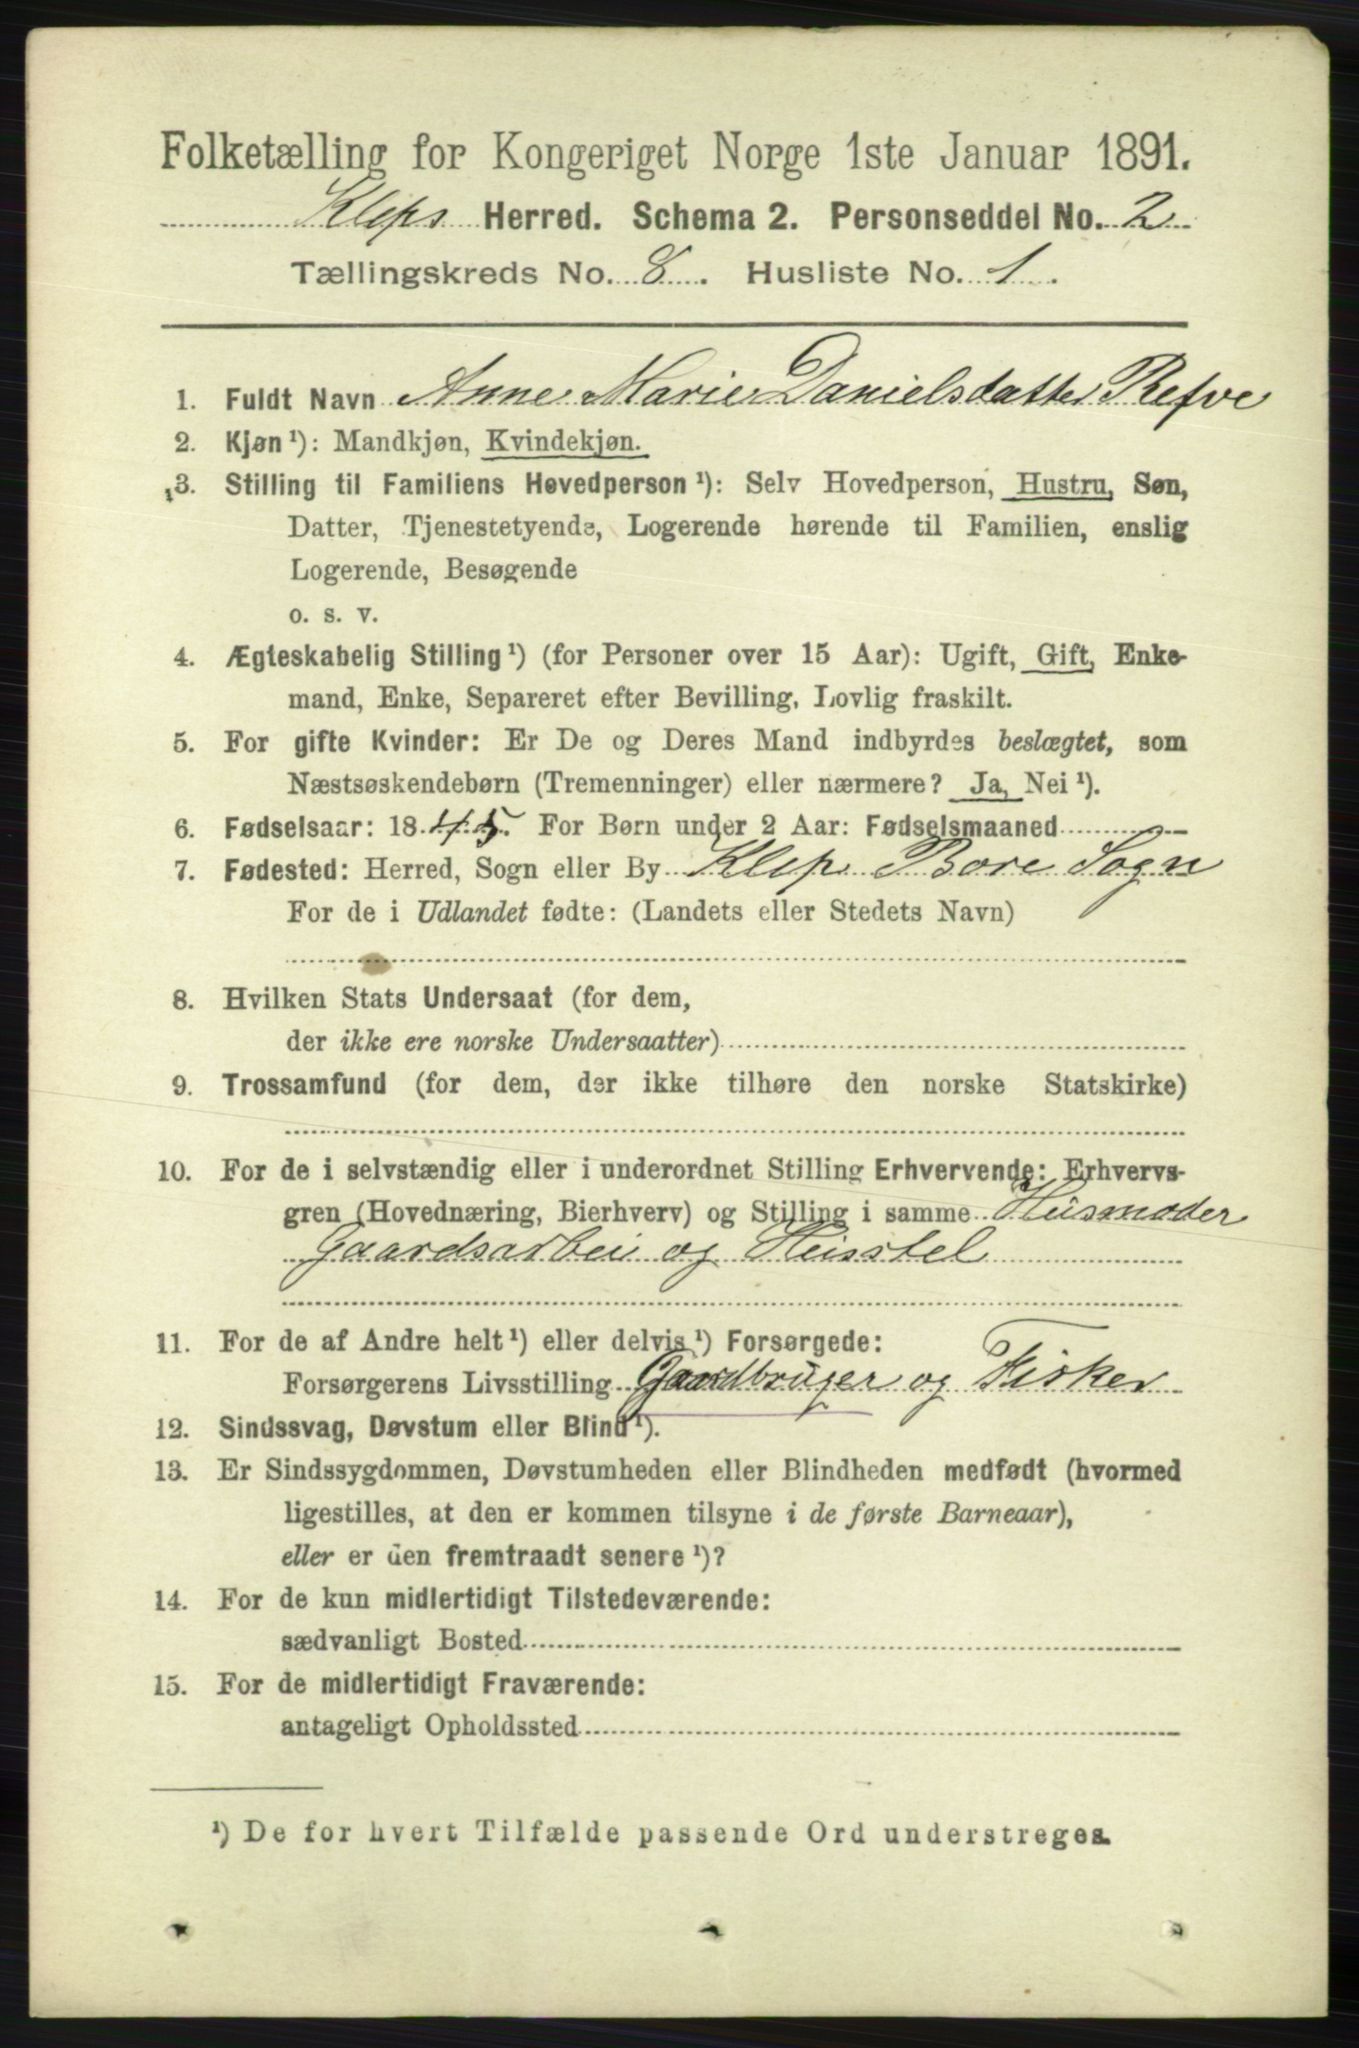 Folketælling for Kongeriget Norge 1ste Januar 1891.
Kleps Herred. Schema 2. Personseddel No. 2
Tællingskreds No. 8. Husliste No. 1.
1. Fuldt Navn Anne Marie Danielsdatter Refve
2. Kjøn ¹): Mandkjøn, Kvindekjøn.
3. Stilling til Familiens Hovedperson ¹): Selv Hovedperson, Hustru, Søn,
Datter, Tjenestetyende, Logerende hørende til Familien, enslig
Logerende, Besøgende
o. s. v.
4. Ægteskabelig Stilling ¹) (for Personer over 15 Aar): Ugift, Gift, Enke-
mand, Enke, Separeret efter Bevilling, Lovlig fraskilt.
5. For gifte Kvinder: Er De og Deres Mand indbyrdes beslægtet, som
Næstsøskendebørn (Tremenninger) eller nærmere? Ja, Nei ¹).
6. Fødselsaar: 1845. For Børn under 2 Aar: Fødselsmaaned
7. Fødested: Herred, Sogn eller By Klep Bore Sogn
For de i Udlandet fødte: (Landets eller Stedets Navn)
8. Hvilken Stats Undersaat (for dem,
der ikke ere norske Undersaatter)
9. Trossamfund (for dem, der ikke tilhøre den norske Statskirke)
10. For de i selvstændig eller i underordnet Stilling Erhvervende: Erhvervs-
gren (Hovednæring, Bierhverv) og Stilling i samme Husmoder
Gaardsarbei og Husstel
11. For de af Andre helt ¹) eller delvis ¹) Forsørgede:
Forsørgerens Livsstilling Gaardbruger og Fisker
12. Sindssvag, Døvstum eller Blind ¹).
13. Er Sindssygdommen, Døvstumheden eller Blindheden medfødt (hvormed
ligestilles, at den er kommen tilsyne i de første Barneaar),
eller er den fremtraadt senere ¹)?
14. For de kun midlertidigt Tilstedeværende:
sædvanligt Bosted
15. For de midlertidigt Fraværende:
antageligt Opholdssted
¹) De for hvert Tilfælde passende Ord understreges.